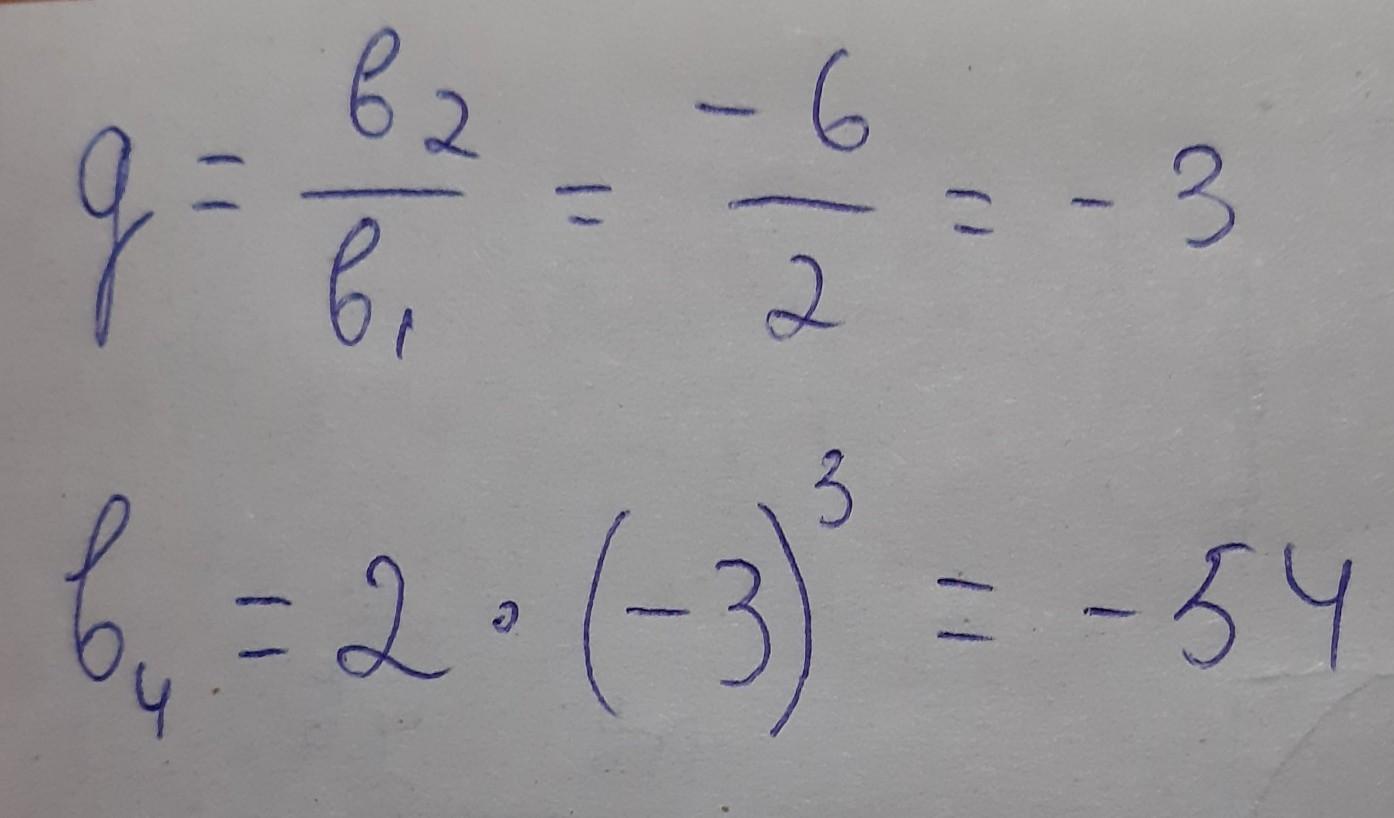 q = в₂/в₁ = -6/2 = -3
в₄ = 2 · (-3)³ = -54